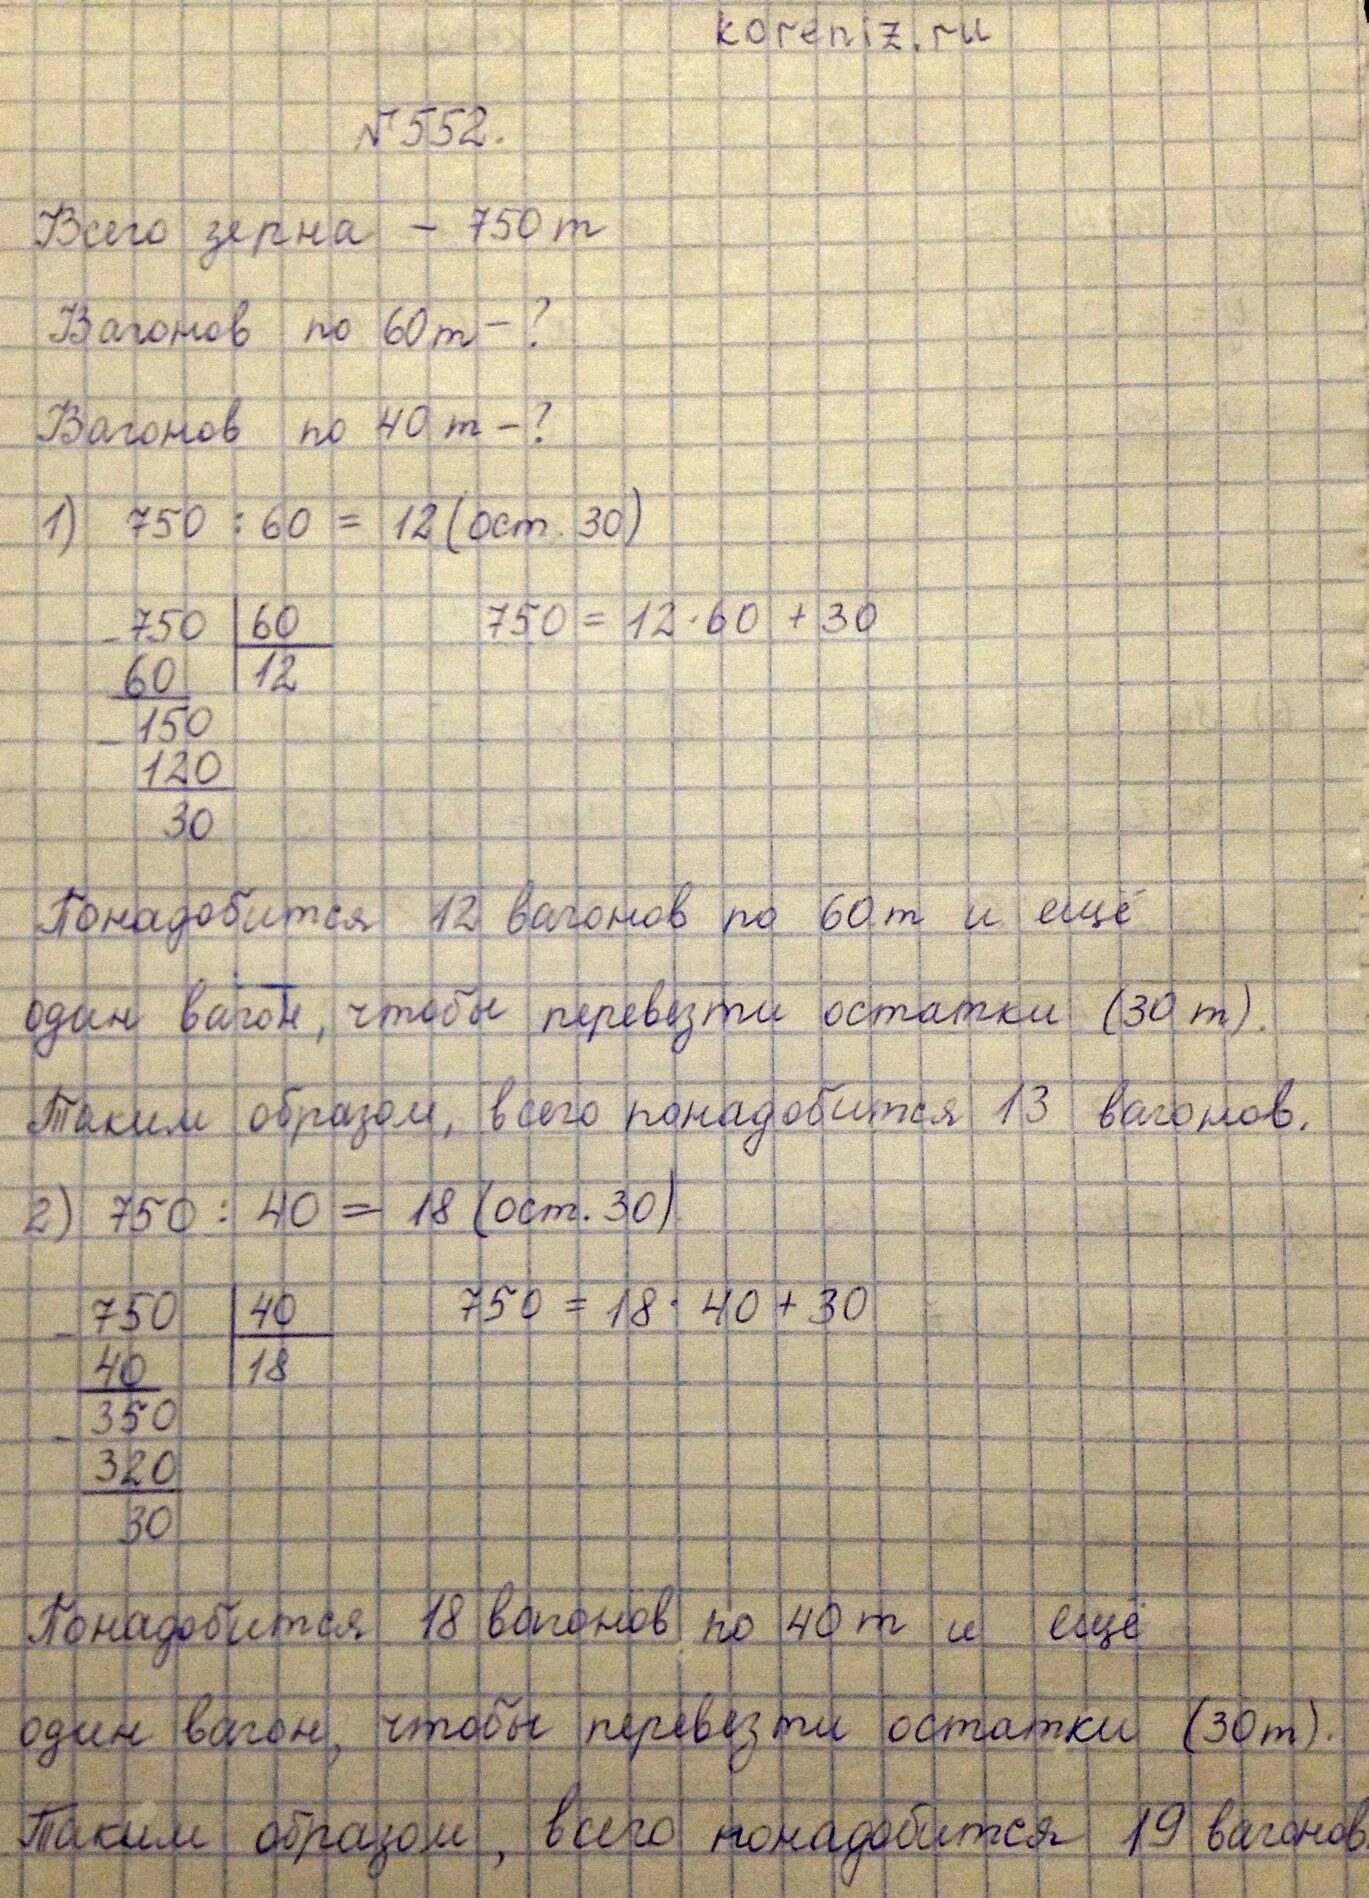 koreniz.ru
№552.
Всего зерна – 750 т
Вагонов по 60 т – ?
Вагонов по 40 т – ?
1) 750 : 60 = 12 (ост. 30)
– 750 | 60 750 = 12 · 60 + 30
60 | 12
– 150
120
30
Понадобится 12 вагонов по 60 т и ещё
один вагон, чтобы перевезти остатки (30 т).
Таким образом, всего понадобится 13 вагонов.
2) 750 : 40 = 18 (ост. 30)
– 750 | 40 750 = 18 · 40 + 30
40 | 18
– 350
320
30
Понадобится 18 вагонов по 40 т и ещё
один вагон, чтобы перевезти остатки (30 т).
Таким образом, всего понадобится 19 вагонов